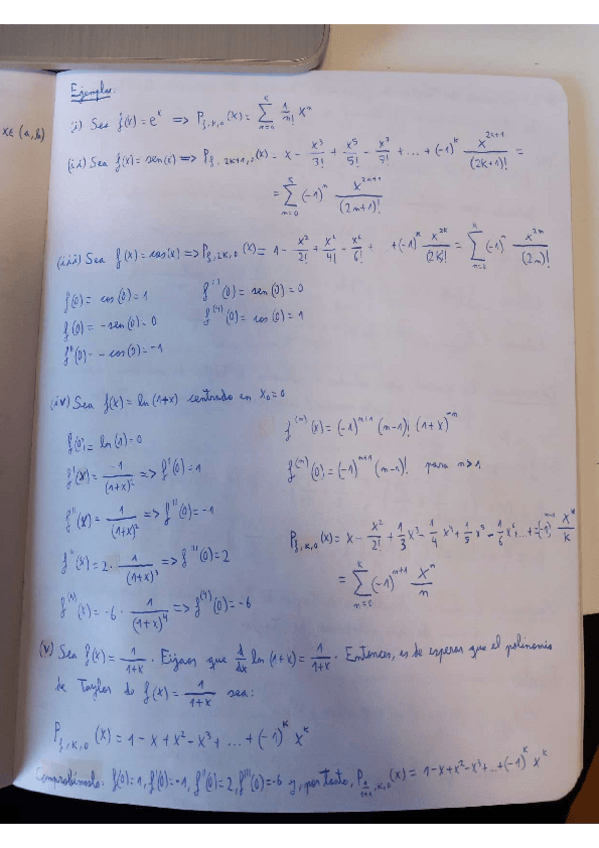 x∈(a,b)
Ejemplos:
(i) Sea f(x)=e^x => P_{f,k,0}(x)= Σ_{n=0}^{k} 1/n! x^n
(ii) Sea f(x)=sen(x) => P_{f,2k+1,0}(x) = x - x^3/3! + x^5/5! - x^7/7! + ... + (-1)^k x^{2k+1}/(2k+1)! =
= Σ_{n=0}^{k} (-1)^n x^{2n+1}/(2n+1)!
(iii) Sea f(x)=cos(x) => P_{f,2k,0}(x)= 1 - x^2/2! + x^4/4! - x^6/6! + ... + (-1)^k x^{2k}/(2k)! = Σ (-1)^n x^{2n}/(2n)!
f(0)= cos(0)=1 f'''(0)= sen(0)=0
f'(0)= -sen(0)=0 f^{(4)}(0)= cos(0)=1
f''(0)= -cos(0)=-1
(iv) Sea f(x)=ln(1+x) centrado en x_0=0
f^{(n)}(x)=(-1)^{n+1} (n-1)! (1+x)^{-n}
f(0)= ln(1)=0
f'(x)= 1/(1+x) => f'(0)=1
f^{(n)}(0)=(-1)^{n+1} (n-1)! para n≥1
f''(x)= 1/(1+x)^2 => f''(0)=-1
P_{f,k,0}(x)= x - x^2/2! + 1/3 x^3 - 1/4 x^4 + 1/5 x^5 - 1/6 x^6 ... + (-1) x^k/k
f'''(x)= 2· 1/(1+x)^3 => f'''(0)=2
= Σ (-1)^{n+1} x^n/n
f^{(4)}(x)= -6· 1/(1+x)^4 => f^{(4)}(0)=-6
(v) Sea f(x)= 1/(1+x). Fijaos que d/dx ln(1+x)= 1/(1+x). Entonces, es de esperar que el polinomio
de Taylor de f(x)= 1/(1+x) sea:
P_{f,k,0}(x)= 1-x+x^2-x^3+...+(-1)^k x^k
Comprobémoslo: f(0)=1, f'(0)=-1, f''(0)=2, f'''(0)=-6 y, por tanto, P_{1/(1+x),k,0}(x)= 1-x+x^2-x^3+...+(-1)^k x^k